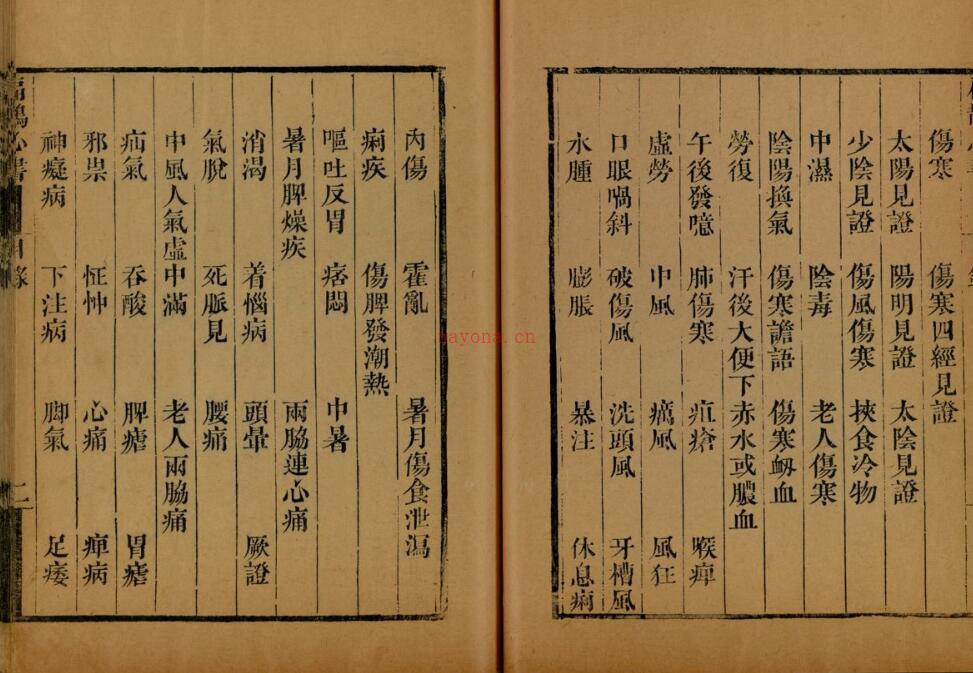 傷寒　傷寒四經見證
太陽見證　陽明見證　太陰見證
少陰見證　傷風傷寒　挾食冷物
中濕　陰毒　老人傷寒
陰陽換氣　傷寒譫語　傷寒衂血
勞復　汗後大便下赤水或膿血
午後發噫　肺傷寒　疽瘡　喉痺
虛勞　中風　癘風　風狂
口眼喎斜　破傷風　洗頭風　牙槽風
水腫　膨脹　暴注　休息痢
內傷　霍亂　暑月傷食泄瀉
痢疾　傷脾發潮熱
嘔吐反胃　痞悶　中暑
暑月脾燥疾　兩脇連心痛
消渴　着惱病　頭暈　厥證
氣脫　死脈見　腰痛
中風人氣虛中滿　老人兩脇痛
疝氣　吞酸　脾瘧　胃瘧
邪祟　怔忡　心痛　痺病
神癡病　下注病　脚氣　足痿
扁鵲心書　目錄　二
nayona.cn